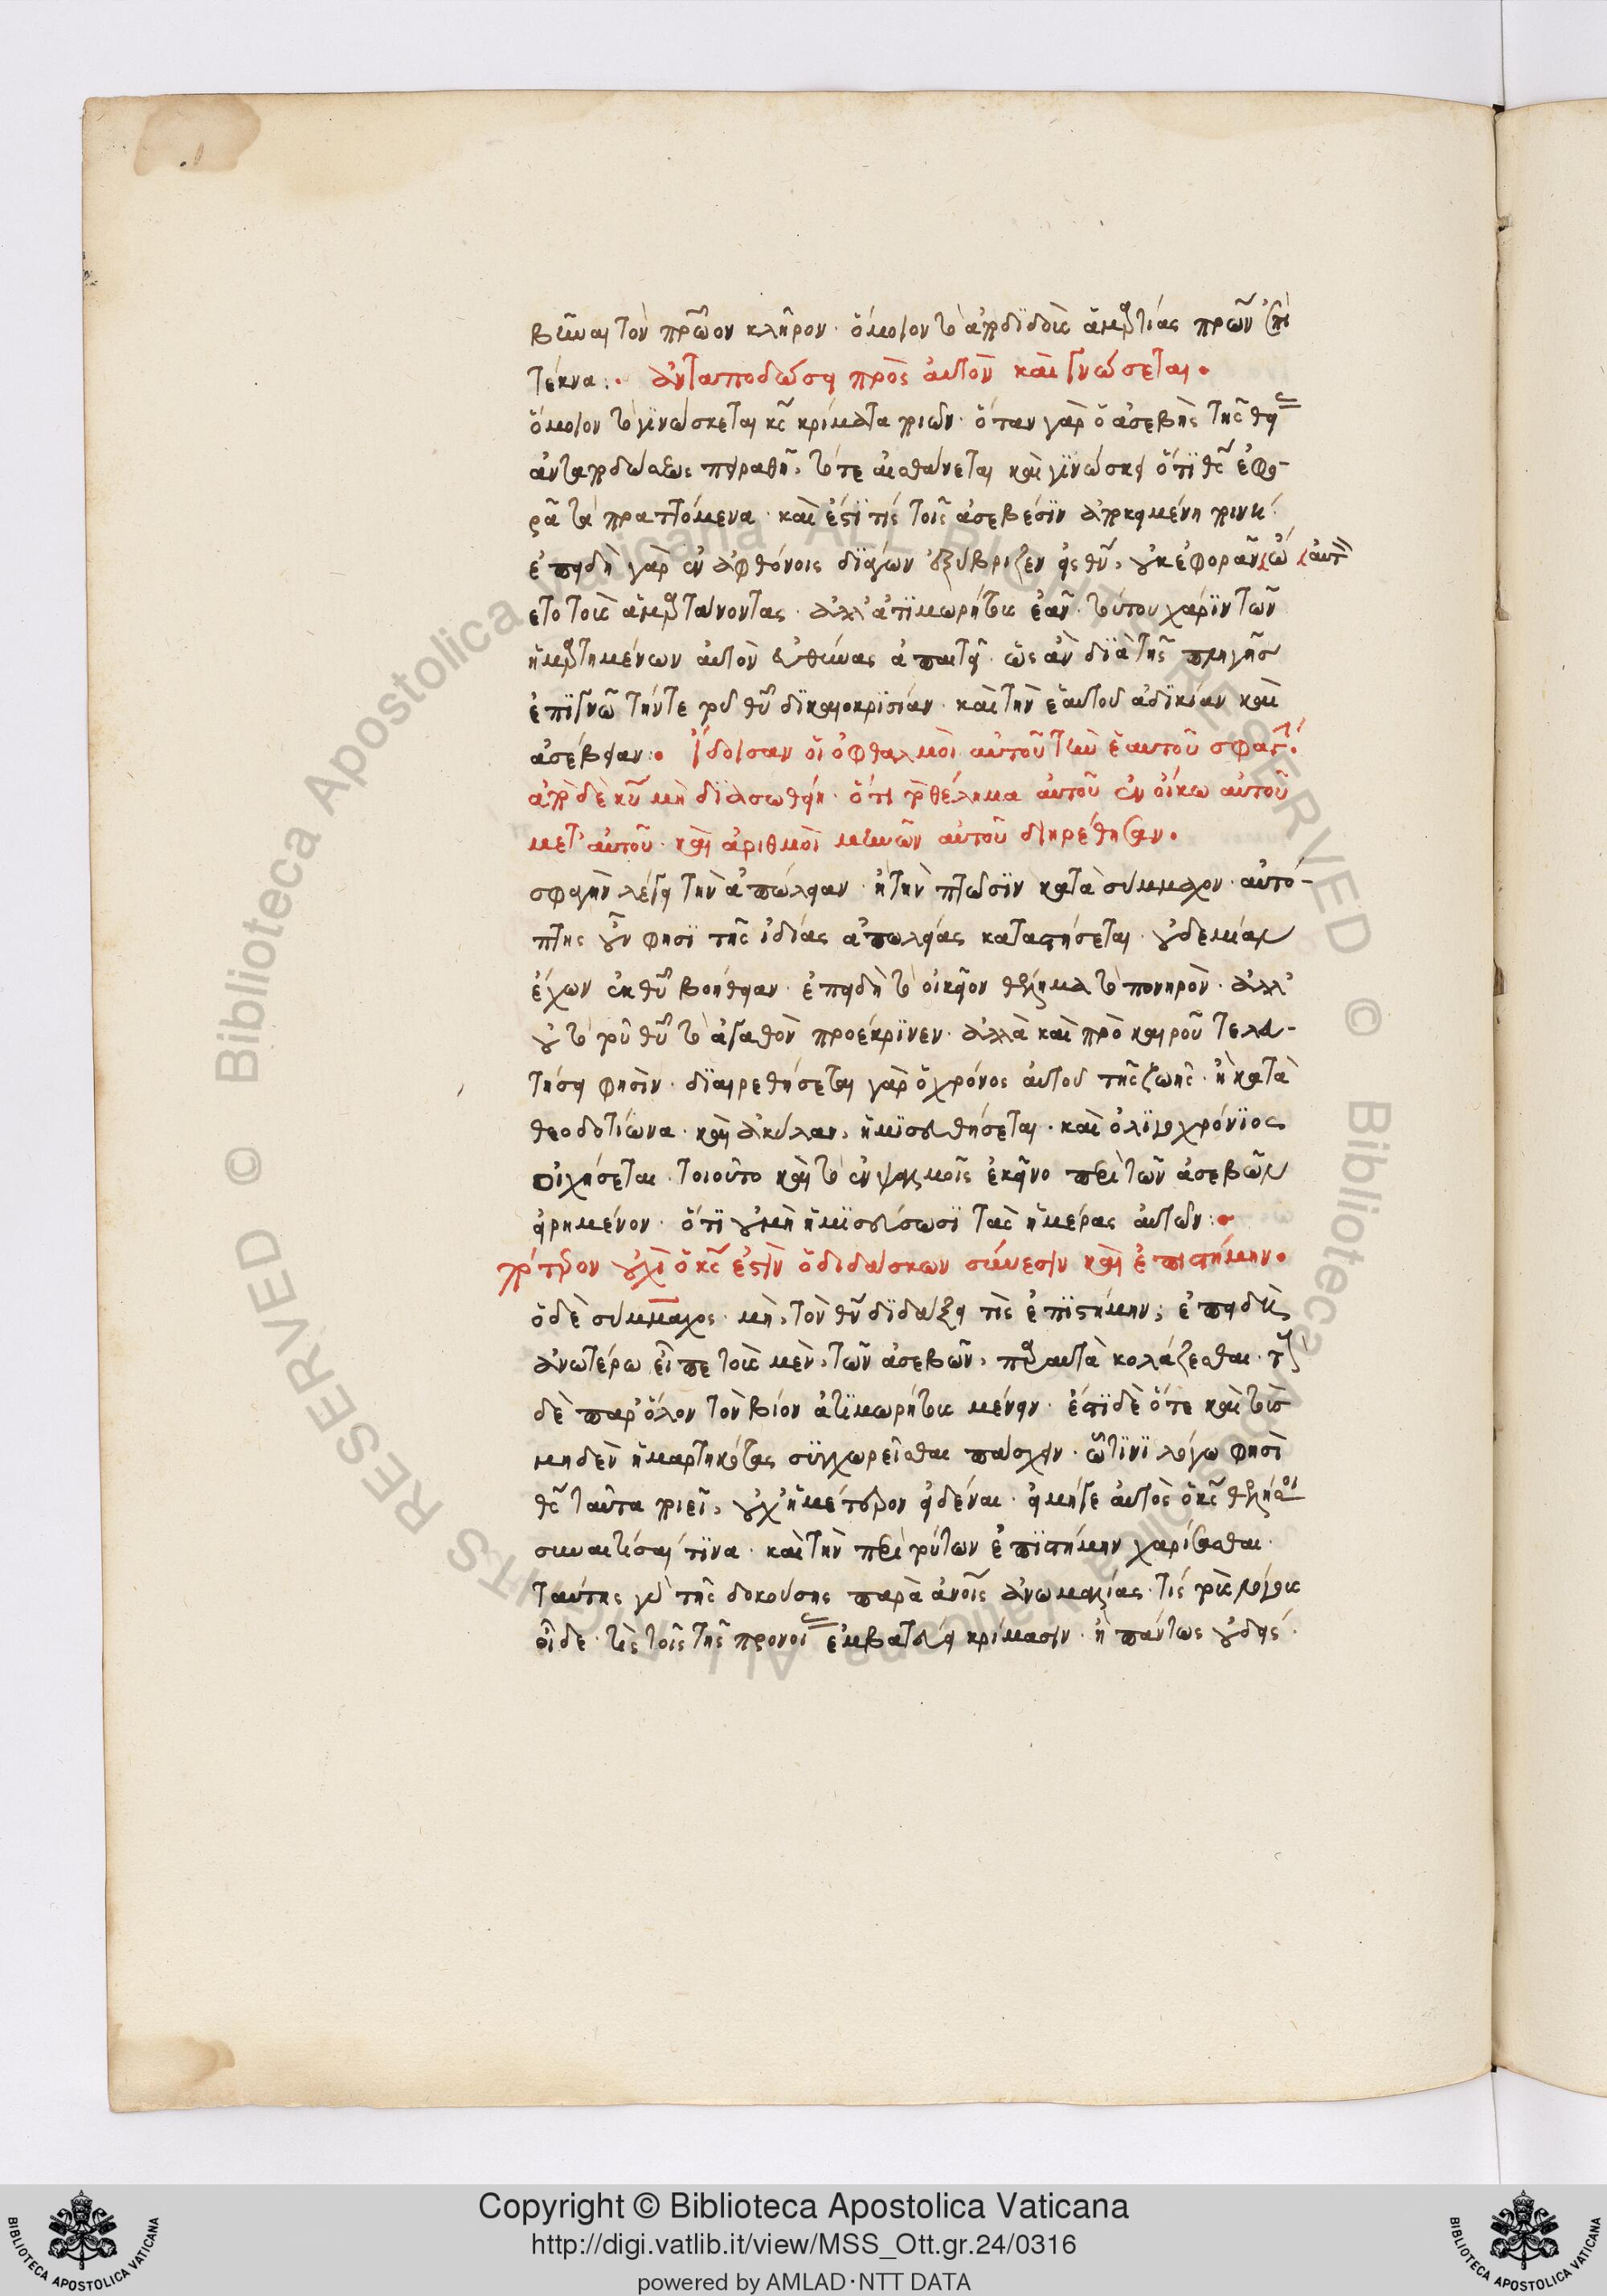 βῆναι τὸν πρῶον κλῆρον · ὅμοιον τὸ ἀποδιδοὺς ἁμαρτίας πρων ἐπὶ
τέκνα :· ἀνταποδώσει πρὸς αὐτὸν καὶ γνώσεται ·
ὅμοιον τὸ γινώσκεται κς κρίματα ποιῶν · ὅταν γὰρ ὁ ἀσεβὴς τῆς θεί
ἀνταποδώσεως πειραθῆ, τότε αἰσθάνεται καὶ γινώσκει ὅτι θς ἐφο-
ρᾶ τὰ πραττόμενα · καὶ ἐστί τις τοῖς ἀσεβέσιν ἀποκειμένη ποινή ·
ἐπειδὴ γὰρ ἐν ἀφθόνοις διάγων ἐξύβριζεν εἰς θν, οὐκ ἐφορᾶν
ετο τοὺς ἁμαρτάνοντας · ἀλλ' ἀτιμωρήτους ἐᾶν · τούτου χάριν τῶν
ἡμαρτημένων αὐτὸν εὐθύνας ἀπαιτεῖ · ὡς ἂν διὰ τῆς πληγῆς
ἐπιγνῶ τήν τε τοῦ θυ δικαιοκρισίαν · καὶ τὴν ἑαυτοῦ ἀδικίαν καὶ
ἀσέβειαν :· ἴδοισαν οἱ ὀφθαλμοὶ αὐτοῦ τὴν ἑαυτοῦ σφαγ
ἀπὸ δὲ κυ μὴ διασωθείη · ὅτι τὸ θέλημα αὐτοῦ ἐν οἴκω αὐτοῦ
μετ' αὐτοῦ · καὶ ἀριθμοὶ μηνῶν αὐτοῦ διηρέθησαν ·
σφαγὴν λέγει τὴν ἀπώλειαν · ἢ τὴν πτῶσιν κατὰ σύμμαχον · αὐτό-
πτης οὖν φησὶ τῆς ἰδίας ἀπωλείας καταστήσεται · οὐδεμίαν
ἔχων ἐκ θυ βοήθειαν · ἐπειδὴ τὸ οἰκεῖον θέλημα τὸ πονηρὸν · ἀλλ'
οὐ τὸ τοῦ θυ τὸ ἀγαθὸν προέκρινεν · ἀλλὰ καὶ πρὸ καιροῦ τελευ-
τήσει φησὶν · διαιρεθήσεται γὰρ ὁ χρόνος αὐτοῦ τῆς ζωῆς · ἢ κατὰ
θεοδοτίωνα · καὶ ἀκύλαν, ἡμισευθήσεται · καὶ ὀλιγοχρόνιος
οἰχήσεται · τοιοῦτο καὶ τὸ ἐν ψαλμοῖς ἐκεῖνο περὶ τῶν ἀσεβῶν
εἰρημένον · ὅτι οὐ μὴ ἡμισεύσωσι τὰς ἡμέρας αὐτῶν :·
πότερον οὐχὶ ὁ κς ἐστὶν ὁ διδάσκων σύνεσιν καὶ ἐπιστήμην ·
ὁ δὲ σύμμαχος · μὴ, τὸν θν διδάξει τὶς ἐπιστήμην ; ἐπειδὴ
ἀνωτέρω εἶπε τοὺς μὲν, τῶν ἀσεβῶν, παραυτὰ κολάζεσθαι · τ
δὲ παρ' ὅλον τὸν βίον ἀτιμωρήτους μένειν · ἔστι δὲ ὅτε καὶ τοὺς
μηδὲν ἡμαρτηκότας συγχωρεῖσθαι πάσχειν · ὧτινι λόγω φησὶ
θς ταῦτα ποιεῖ, οὐχ ἡμέτερον εἰδέναι · εἰ μήγε αὐτὸς ὁ κς θελήσοι
συνετίσαι τινα · καὶ τὴν περὶ τούτων ἐπιστήμην χαρίσασθαι ·
ταύτης γὰρ τῆς δοκούσης παρὰ ἀνοις ἀνωμαλίας · τίς τοὺς λόγους
οἶδε · τίς τοῖς τῆς προνοί ἐμβατεύει κρίμασιν · ἢ πάντως οὐδείς ·
Copyright © Biblioteca Apostolica Vaticana
http://digi.vatlib.it/view/MSS_Ott.gr.24/0316
powered by AMLAD·NTT DATA